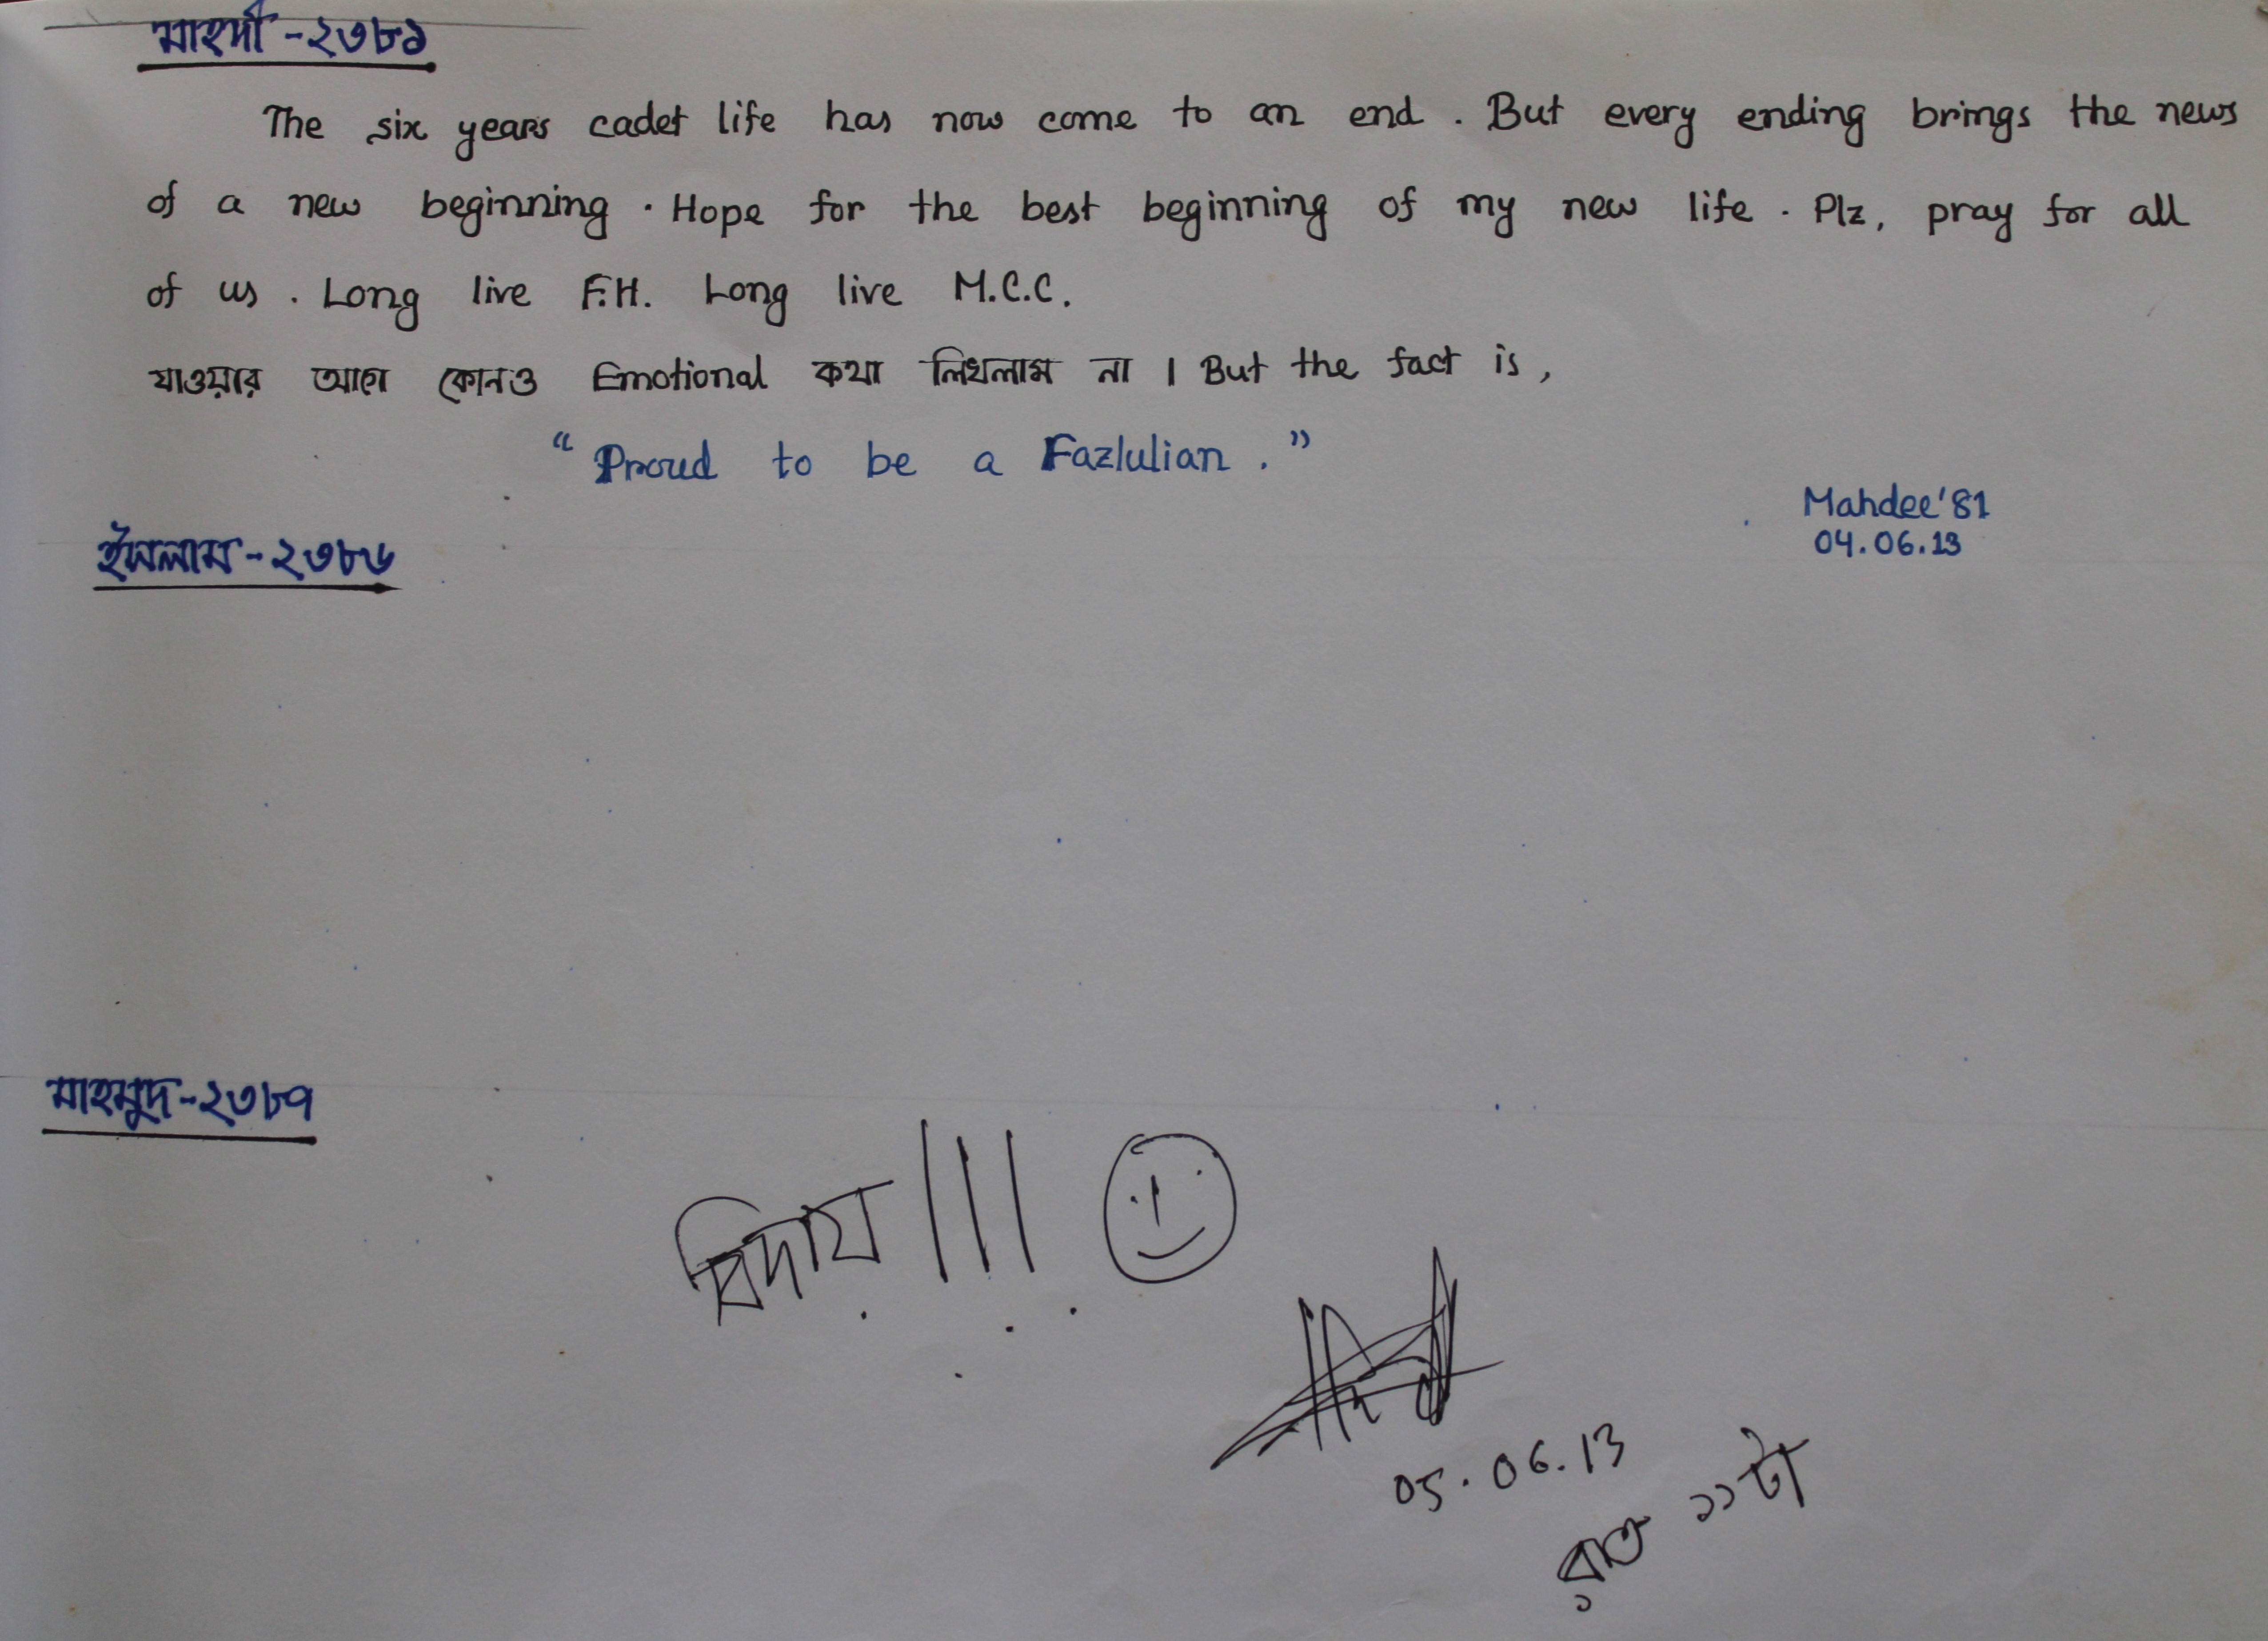 মাহদী-২৩৮১
The six years cadet life has now come to an end. But every ending brings the news
of a new beginning. Hope for the best beginning of my new life. Plz, pray for all
of us. Long live F.H. Long live M.C.C.
যাওয়ার আগে কোনও Emotional কথা লিখলাম না। But the fact is,
"Proud to be a Fazlulian."
Mahdee'81
04.06.13
ইসলাম-২৩৮৬
মাহমুদ-২৩৮৭
বিদায়!!!
05.06.13
রাত ১১টা